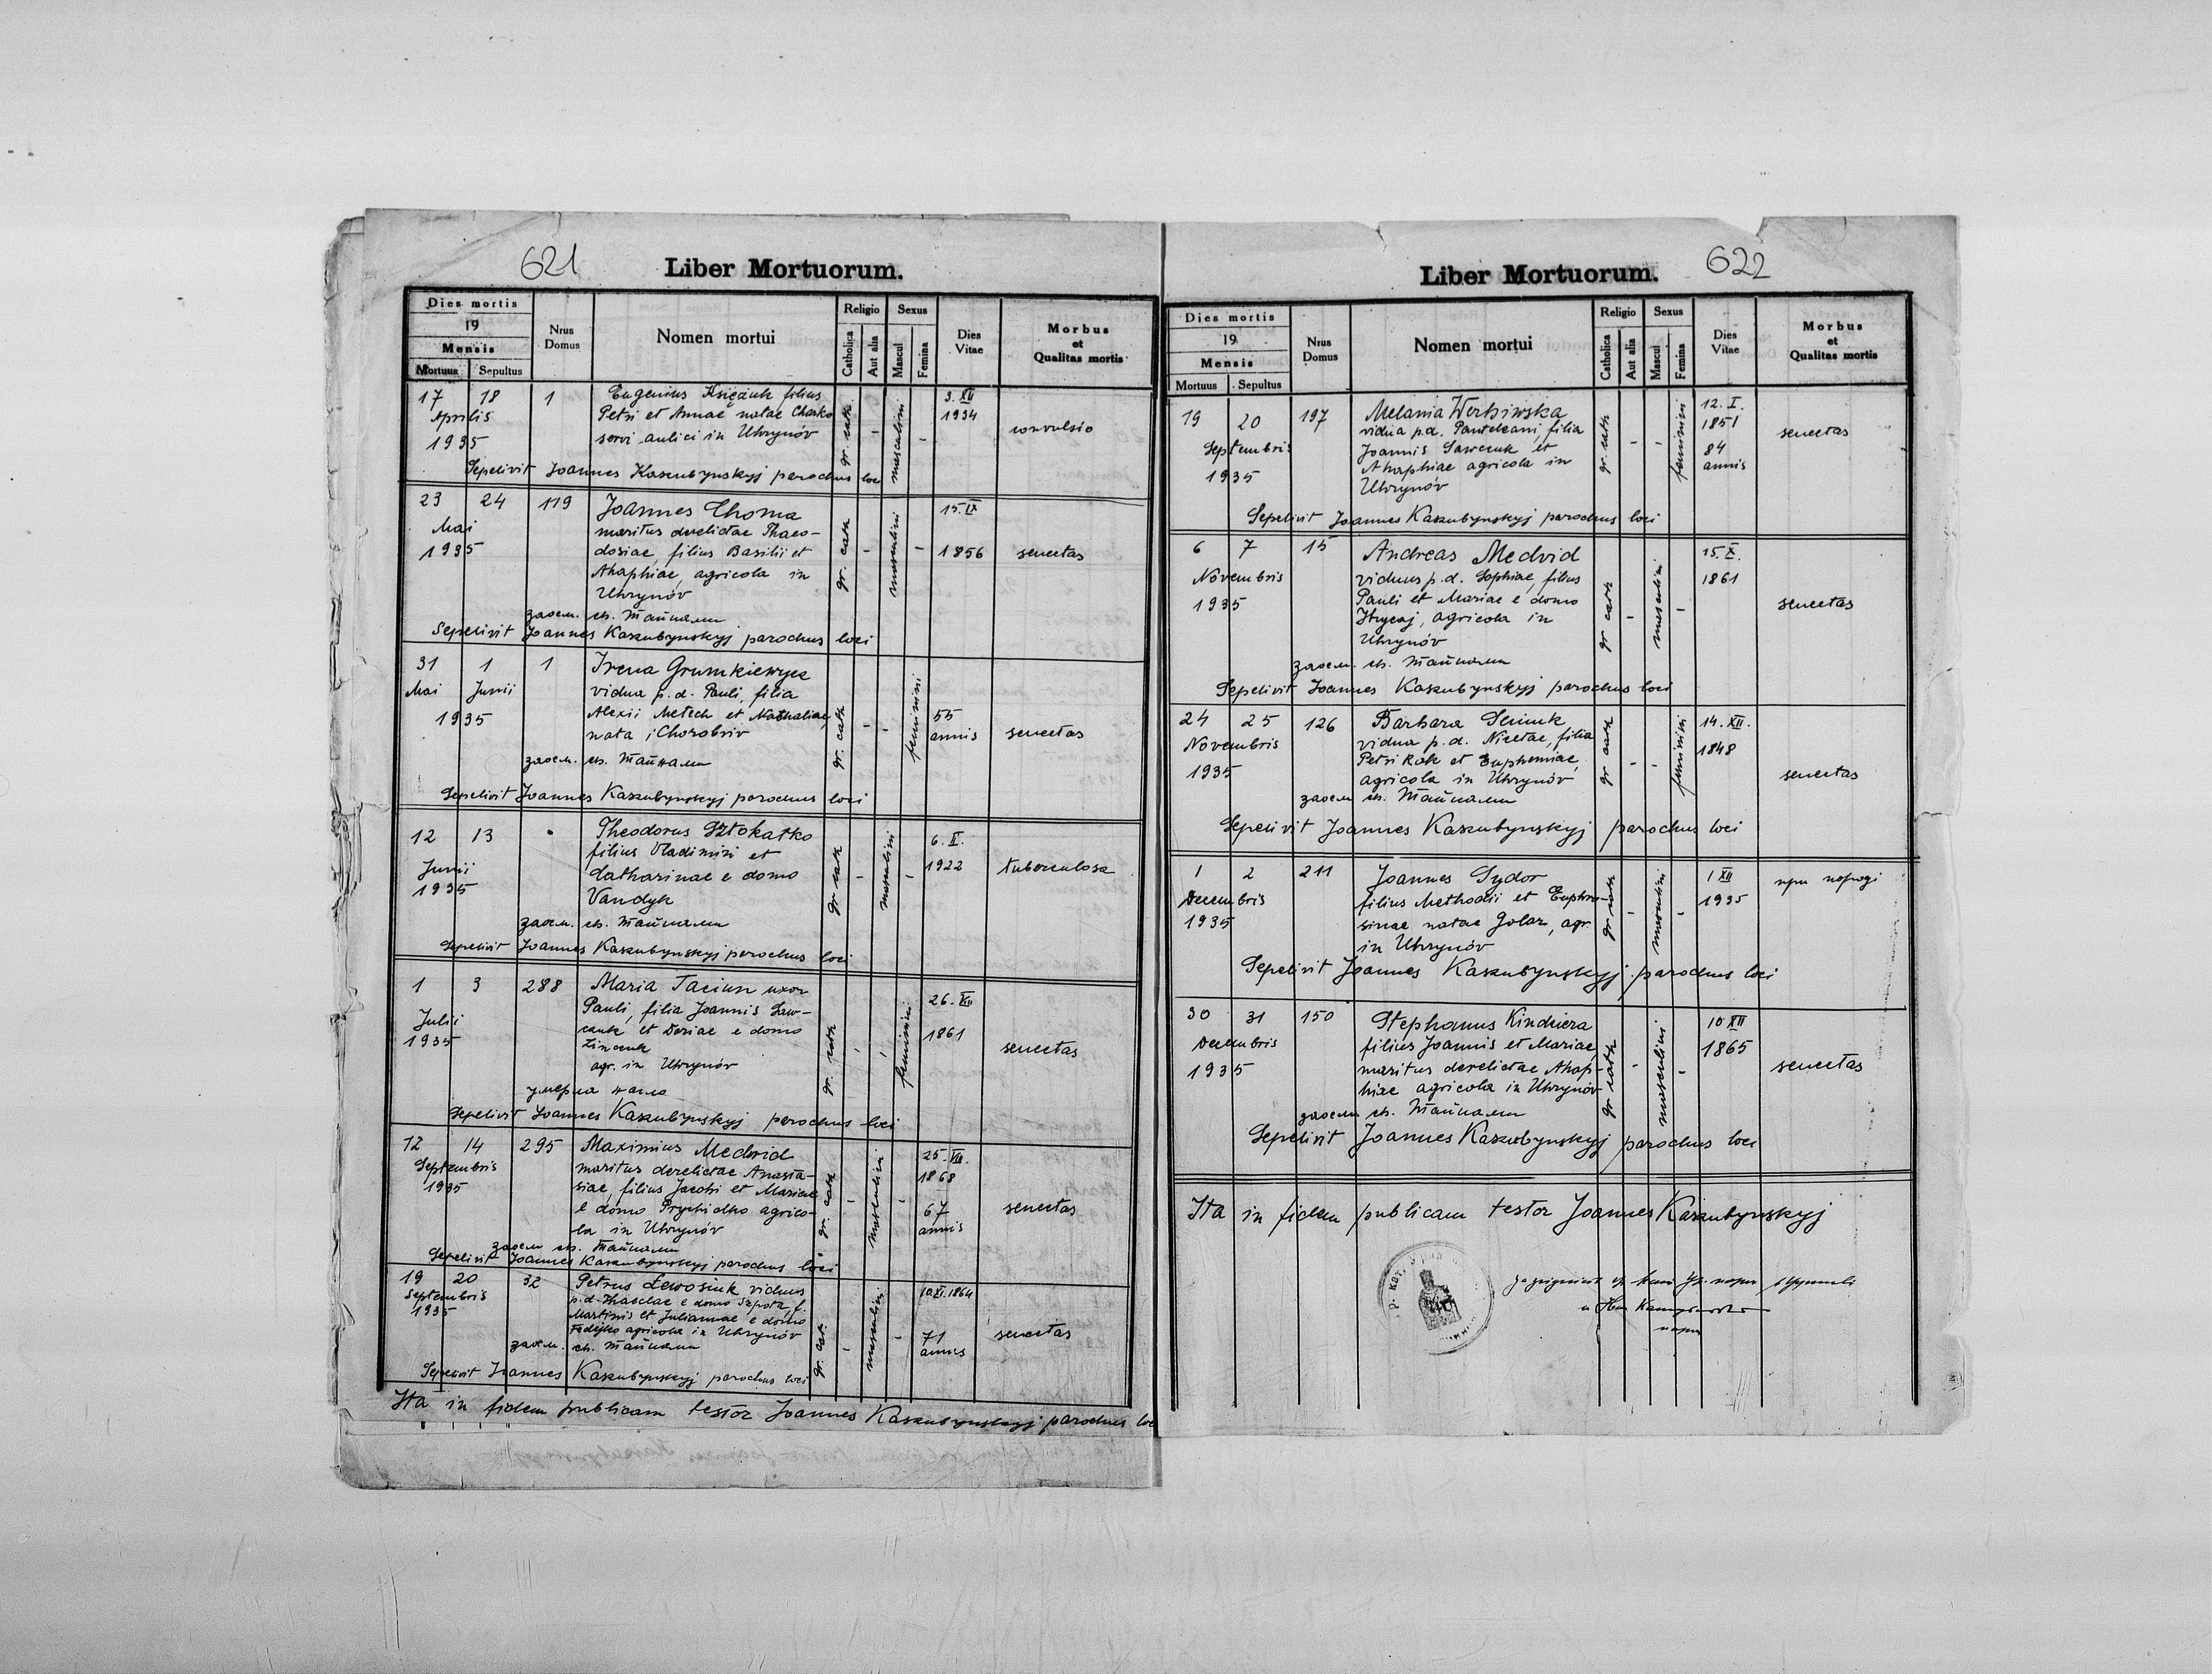 621
Liber Mortuorum.
Dies mortis
19
Mensis
Mortuus
Sepultus
Nrus
Domus
Nomen mortui
Religio
Catholica
Aut alia
Sexus
Mascul
Femina
Dies
Vitae
Morbus
et
Qualitas mortis
17 18 1 Eugenius Księżuk filius 3. XII
Aprilis Petri et Annae natae Charko 1934
1935 servi aulici in Uhrynów gr. cath. - masculini - convulsio
Sepelivit Joannes Kaszubynskyj parochus loci
23 24 119 Joannes Choma 15. IX
Mai maritus derelictae Thaeo-
1935 dosiae, filius Basilii et gr. cath - masculini - 1856 senectas
Ahaphiae, agricola in
Uhrynów
заосм. св. тайнами
Sepelivit Joannes Kaszubynskyj parochus loci
31 1 1 Irena Grumkiewycz
Mai Junii vidua p.d. Pauli, filia
1935 Alexii Metech et Nathaliae, gr. cath - - feminini 55
nata i Chorobriv annis senectas
заосм. св. тайнами
Sepelivit Joannes Kaszubynskyj parochus loci
12 13 Theodorus Sztokatko 6. II.
Junii filius Vladimiri et 1922
1935 Catharinae e domo gr cath - masculini - tuberculosa
Vandyk
заосм. св. тайнами
Sepelivit Joannes Kaszubynskyj parochus loci
1 3 288 Maria Taciun uxor 26. VII
Julii Pauli, filia Joannis Saw-
1935 czuk et Dosiae e domo 1861
Zinczuk gr. cath - - feminini senectas
agr. in Uhrynów
умерла нагло
Sepelivit Joannes Kaszubynskyj parochus loci
12 14 295 Maximius Medvid 25. VIII.
Septembris maritus derelictae Anasta- 1868
1935 siae, filius Jacobi et Mariae
e domo Prychidko agrico- gr. cath - masculini - 67 senectas
la in Uhrynów annis
заосм св. тайнами
Sepelivit Joannes Kaszubynskyj parochus loci
19 20 32 Petrus Lewosiuk viduus 10 XI. 1864
Septembris p.d. Thaeclae e domo Szpota, f.
1935 Martinis et Juliannae e domo
Fedijko agricola in Uhrynów gr. cat. - masculini - 71 annis senectas
заосм. св. тайнами
Sepelivit Joannes Kaszubynskyj parochus loci
Ita in fidem publicam testor Joannes Kaszubynskyj parochus loci
622
Liber Mortuorum.
Dies mortis
19
Mensis
Mortuus
Sepultus
Nrus
Domus
Nomen mortui
Religio
Catholica
Aut alia
Sexus
Mascul
Femina
Dies
Vitae
Morbus
et
Qualitas mortis
19 20 197 Melania Werbiwska 12. I.
Septembris vidua p.d. Panteleani, filia 1851
1935 Joannis Sawczuk et gr. cath - - feminini 84 senectas
Ahaphiae agricola in annis
Uhrynów
Sepelivit Joannes Kaszubynskyj parochus loci
6 7 15 Andreas Medvid 15. X.
Novembris viduus p.d. Sophiae, filius 1861
1935 Pauli et Mariae e domo gr cath - masculini - senectas
Hrycaj, agricola in
Uhrynów
заосм. св. тайнами
Sepelivit Joannes Kaszubynskyj parochus loci
24 25 126 Barbara Seniuk 14. XII.
Novembris vidua p.d. Nicetae, filia 1848
1935 Petri Kok et Euphemiae, gr cath - - feminini senectas
agricola in Uhrynów
заосм св. тайнами
Sepelivit Joannes Kaszubynskyj parochus loci
1 2 211 Joannes Sydor 1 XII при породі
Decembris filius Methodii et Euphro- 1935
1935 sinae natae Golar, agr. gr cath - masculini -
in Uhrynów
Sepelivit Joannes Kaszubynskyj parochus loci
30 31 150 Stephanus Kindzera 10 XII
Decembris filius Joannis et Mariae, 1865
1935 maritus derelictae Ahap- gr cath - masculini - senectas
hiae agricola in Uhrynów
заосм св. тайнами
Sepelivit Joannes Kaszubynskyj parochus loci
Ita in fidem publicam testor Joannes Kaszubynskyj